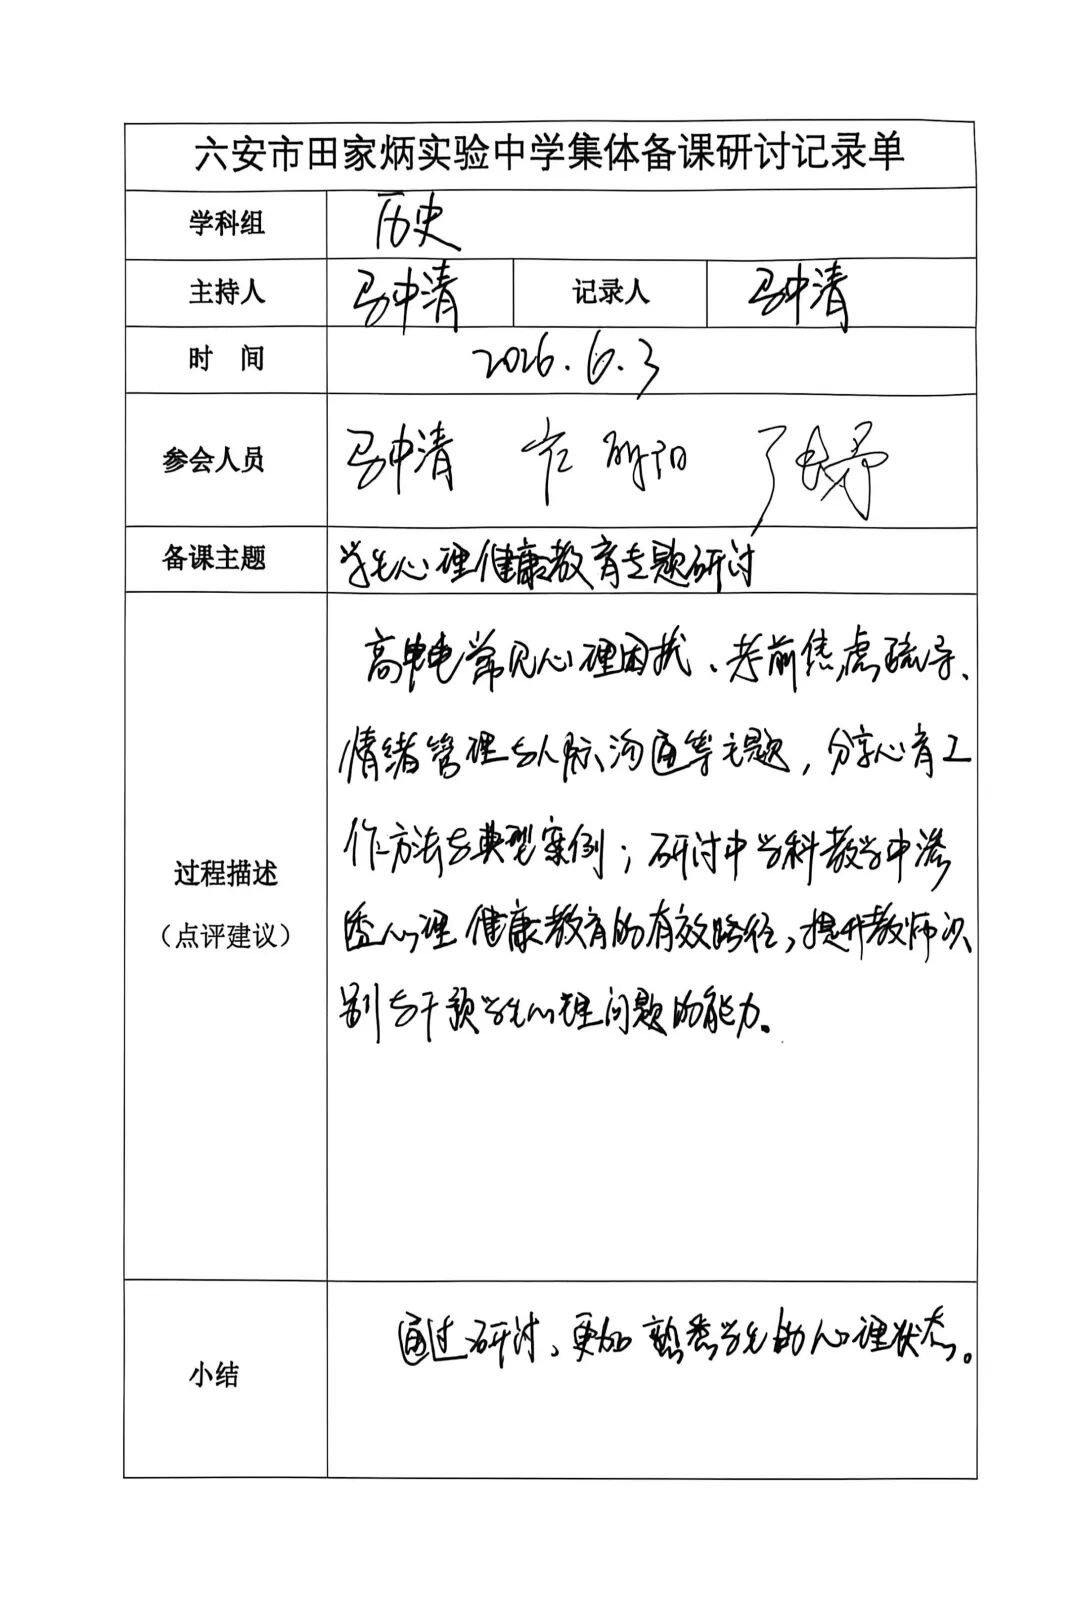 六安市田家炳实验中学集体备课研讨记录单
学科组 历史
主持人 马中清 记录人 马中清
时 间 2026.6.3
参会人员 马中清
备课主题 学生心理健康教育专题研讨
高中生常见心理困扰、考前焦虑疏导、
情绪管理与人际沟通等主题，分享心育工
作方法与典型案例；研讨中学科教学中渗
透心理健康教育的有效路径，提升教师识
别与干预学生心理问题的能力。
过程描述
（点评建议）
通过研讨，更加熟悉学生的心理状态。
小结